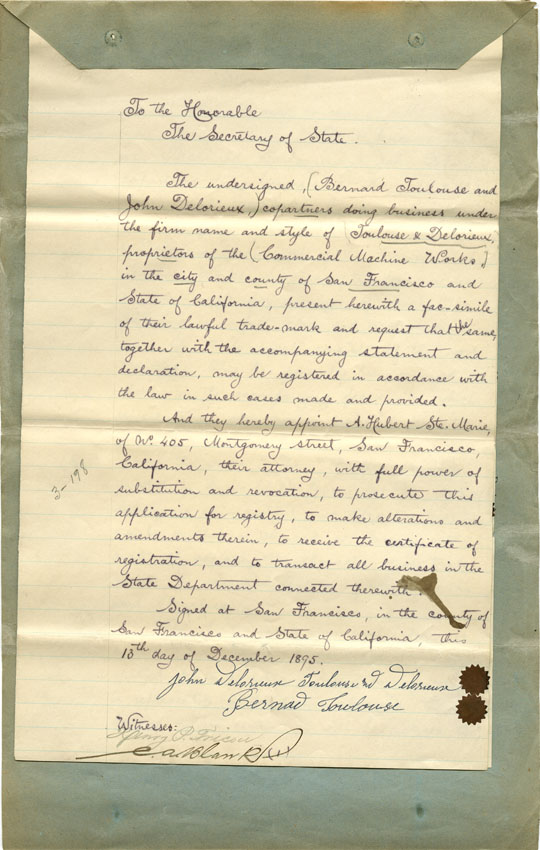 To the Honorable
The Secretary of State.
The undersigned, (Bernard Toulouse and
John Delorieux,) copartners doing business under
the firm name and style of Toulouse & Delorieux,
proprietors of the (Commercial Machine Works)
in the city and county of San Francisco and
State of California, present herewith a fac-simile
of their lawful trade-mark and request that the same,
together with the accompanying statement and
declaration, may be registered in accordance with
the law in such cases made and provided.
And they hereby appoint A. Hubert Ste. Marie,
of No. 405, Montgomery street, San Francisco,
California, their attorney, with full power of
3-198
substitution and revocation, to prosecute this
application for registry, to make alterations and
amendments therein, to receive the certificate of
registration, and to transact all business in the
State Department connected therewith.
Signed at San Francisco, in the county of
San Francisco and State of California, this
13th day of December 1895.
John Delorieux Toulouse and Delorieux
Bernad Toulouse
Witnesses:
Henry P.